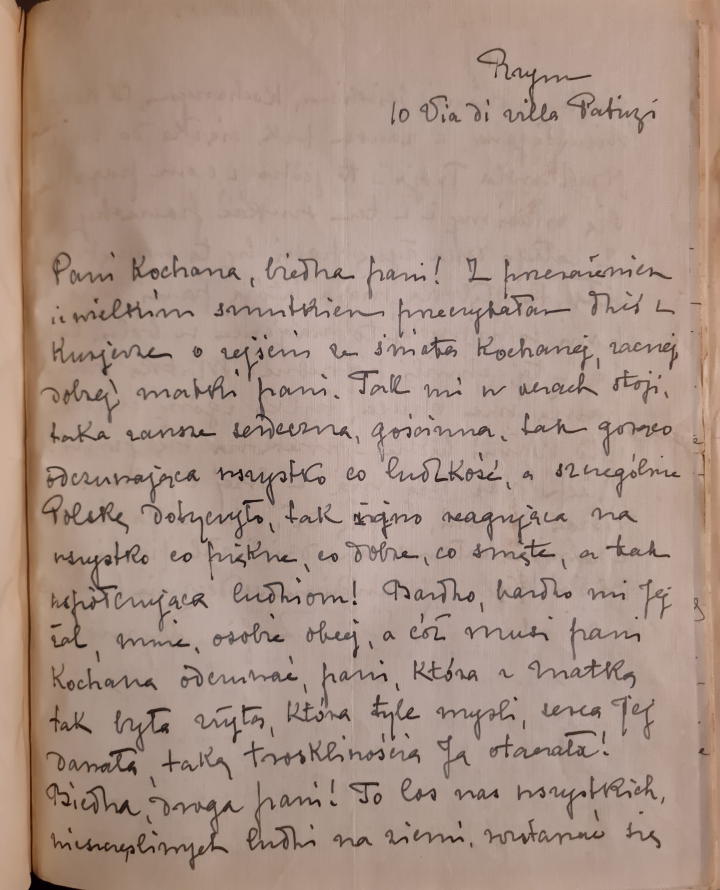 Rzym
10 Via di villa Patrizi
Pani Kochana, biedna pani! Z przerażeniem
i wielkim smutkiem przeczytałam dziś z
Kurjerze o zejściu ze świata Kochanej, zacnej
dobrej matki pani. Tak mi w oczach stoji,
taka zawsze serdeczna, gościnna, tak gorąco
odczuwająca wszystko co ludzkość, a szczególnie
Polskę dotyczyło, tak reagująca na
wszystko co piękne, co dobre, co smętne, a tak
współczująca ludziom! Bardzo, bardzo mi Jej
żal, mnie, osobie obcej, a cóż musi pani
Kochana odczuwać, pani, która z matką
tak była zżyta, która tyle myśli, serca Jej
dawała, taką troskliwością Ją otaczała!
Biedna, droga pani! To los nas wszystkich,
nieszczęśliwych ludzi na ziemi, rozstawać się